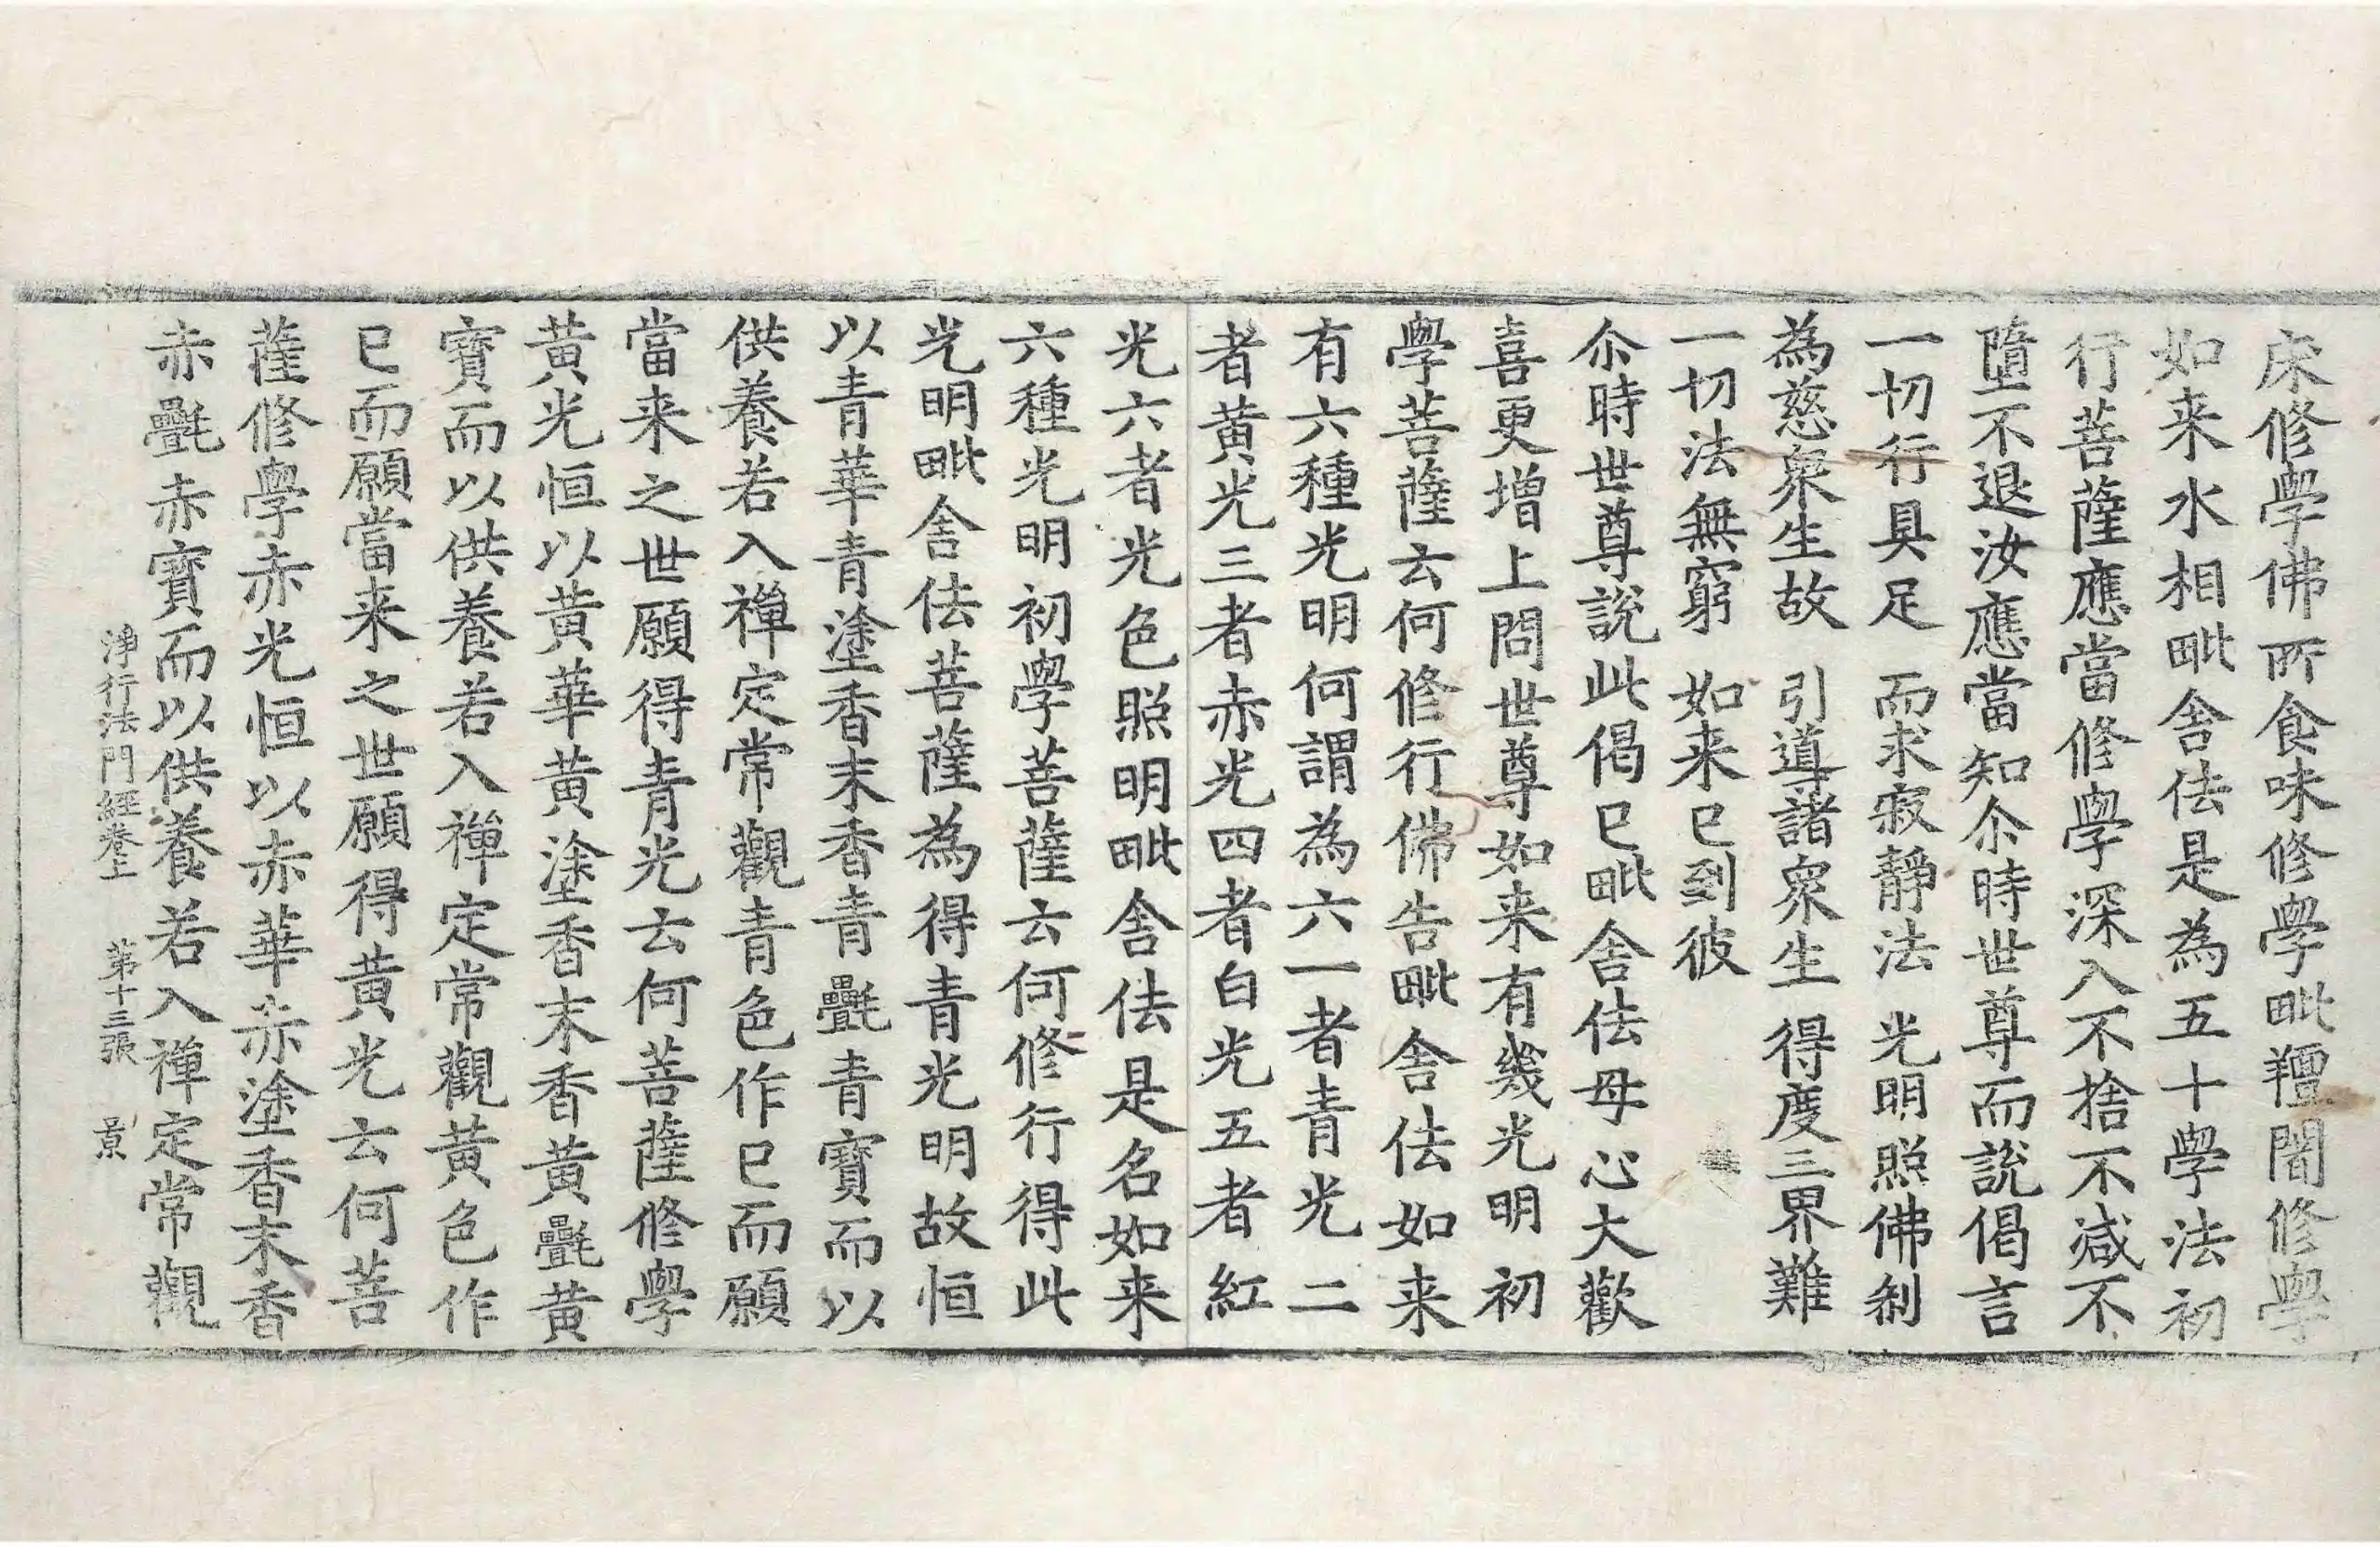 床修學佛所食味修學毗羶闍修學
如来水相毗舍佉是為五十學法初
行菩薩應當修學深入不捨不減不
墮不退汝應當知尒時世尊而說偈言
一切行具足　而求寂靜法　光明照佛刹
為慈衆生故　引導諸衆生　得度三界難
一切法無窮　如来已到彼
尒時世尊說此偈已毗舍佉母心大歡
喜更增上問世尊如来有幾光明初
學菩薩云何修行佛告毗舍佉如来
有六種光明何謂為六一者青光二
者黃光三者赤光四者白光五者紅
光六者光色照明毗舍佉是名如来
六種光明初學菩薩云何修行得此
光明毗舍佉菩薩為得青光明故恒
以青華青塗香末香青㲲青寶而以
供養若入禪定常觀青色作已而願
當来之世願得青光云何菩薩修學
黃光恒以黃華黃塗香末香黃㲲黃
寶而以供養若入禪定常觀黃色作
已而願當来之世願得黃光云何菩
薩修學赤光恒以赤華赤塗香末香
赤㲲赤寶而以供養若入禪定常觀
淨行法門經卷上　第十三張　景